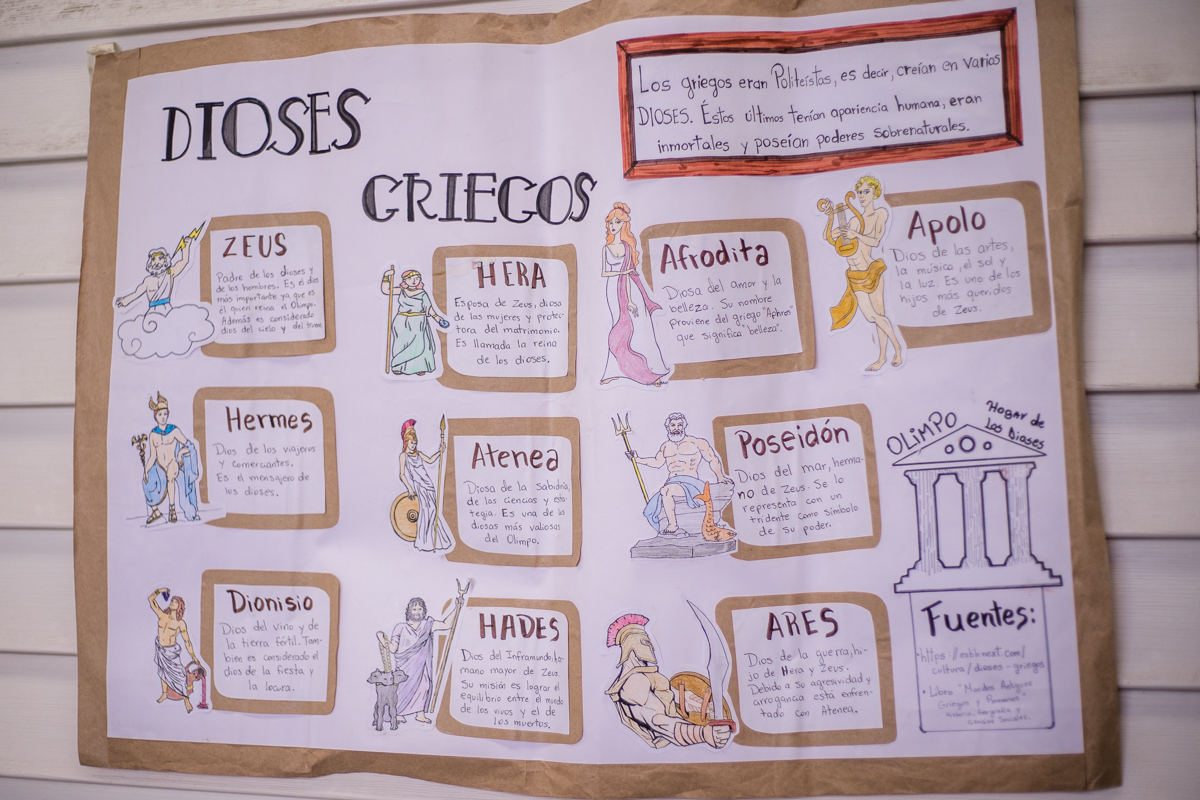 DIOSES
GRIEGOS
Los griegos eran Politeístas, es decir, creían en varios
DIOSES. Éstos últimos tenían apariencia humana, eran
inmortales y poseían poderes sobrenaturales.
ZEUS
Padre de los dioses y
de los hombres. Es el dios
más importante ya que es
el quien reina el Olimpo.
Además es considerado
dios del cielo y del
HERA
Esposa de Zeus, diosa
de las mujeres y protec-
tora del matrimonio.
Es llamada la reina
de los dioses.
Afrodita
Diosa del amor y la
belleza. Su nombre
proviene del griego "Aphros"
que significa "belleza".
Apolo
Dios de las artes,
la música, el sol y
la luz. Es uno de los
hijos más queridos
de Zeus.
Hermes
Dios de los viajeros
y comerciantes.
Es el mensajero de
los dioses.
Atenea
Diosa de la Sabidría,
de las ciencias y est-
tegia. Es una de la
diosas más valiosas
del Olimpo.
Poseidón
Dios del mar, herma-
no de Zeus. Se lo
representa con un
tridente como símbolo
de su poder.
OLIMPO
Hogar de
los Dioses
Dionisio
Dios del vino y de
la tierra fértil. Tam-
bien es considerado el
dios de la fiesta y
la locura.
HADES
Dios del Inframundo, her-
mano mayor de Zeus.
Su misión es lograr el
equilibrio entre el mundo
de los vivos y el de
los muertos.
ARES
Dios de la guerra, hi-
jo de Hera y Zeus.
Debido a su agresividad y
arrogancia está enfren-
tado con Atenea.
Fuentes:
cultura/dioses-griegos
• Libro "Mundos Antiguos
Griegos y Romanos"
Sociales.